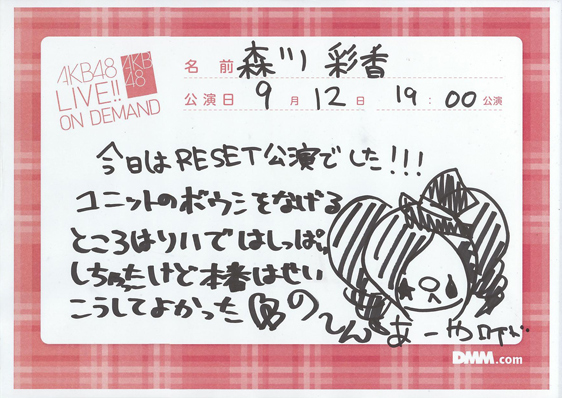 AKB48
LIVE!!
ON DEMAND
AKB
48
名前 森川 彩香
公演日 9月12日 19:00公演
今日はRESET公演でした!!!
ユニットのボウシをなげる
ところはリハではしっぱい
しちゃったけど本番はせい
こうしてよかった
あーや
DMM.com